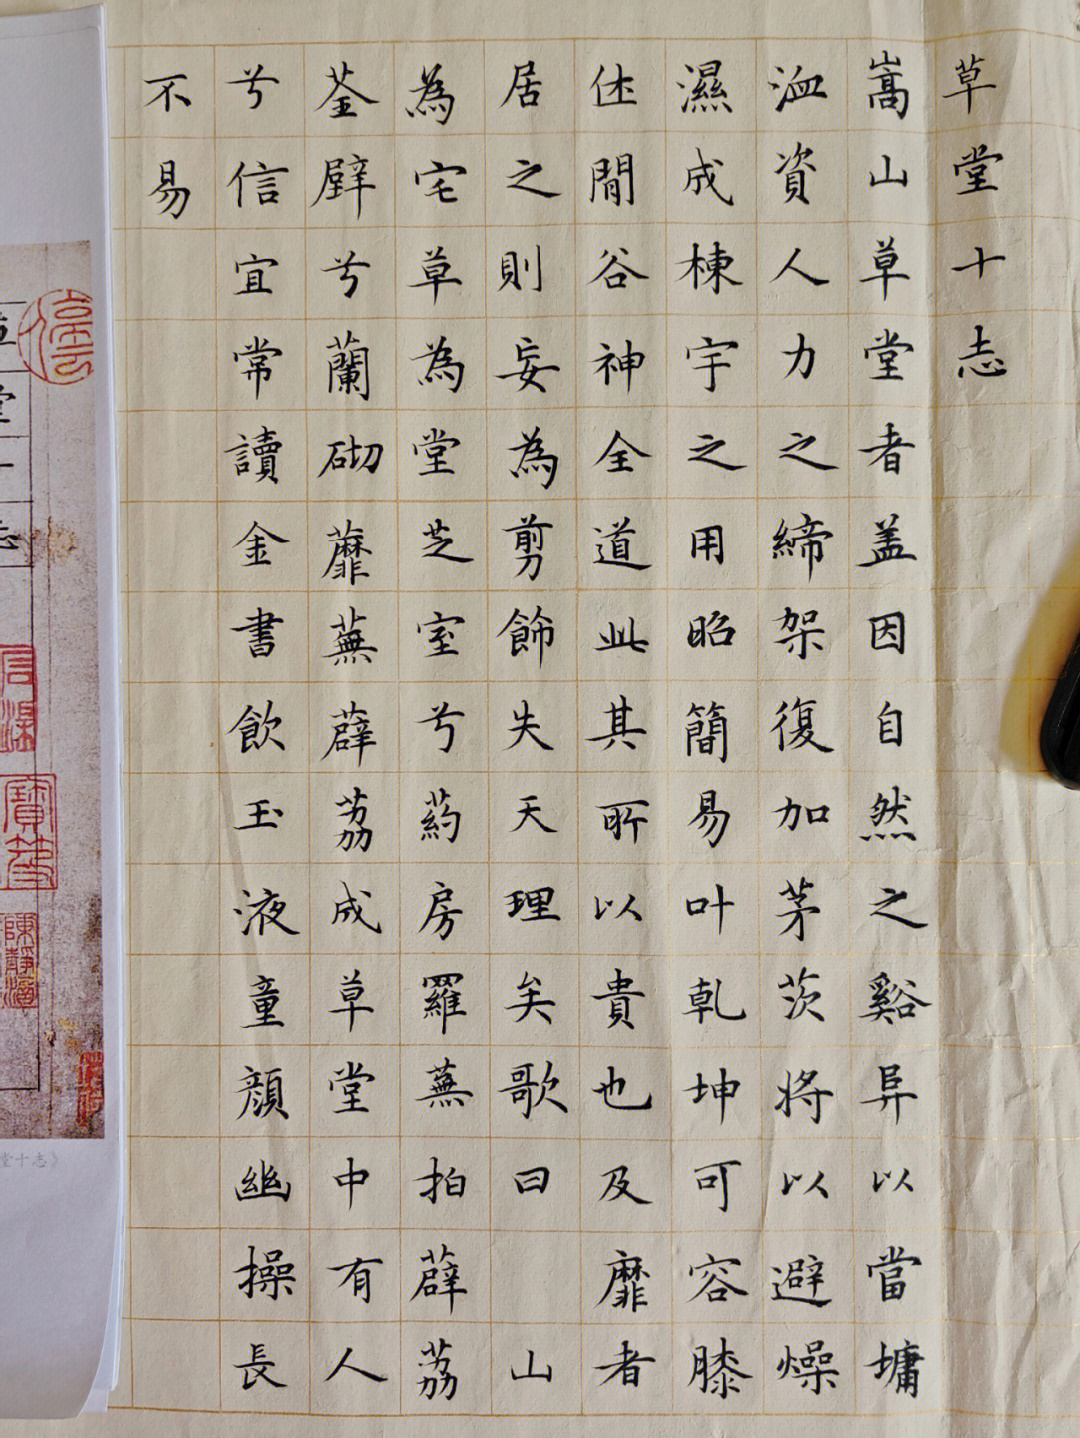 草堂十志
嵩山草堂者盖因自然之谿异以當墉
洫資人力之締架復加茅茨將以避燥
濕成棟宇之用昭簡易叶乾坤可容膝
休閒谷神全道此其所以貴也及靡者
居之則妄為剪飾失天理矣歌曰 山
為宅草為堂芝室兮葯房羅蕪拍薜荔
荃辟兮蘭砌蘼蕪薜荔成草堂中有人
兮信宜常讀金書飲玉液童顏幽操長
不易
堂十志》